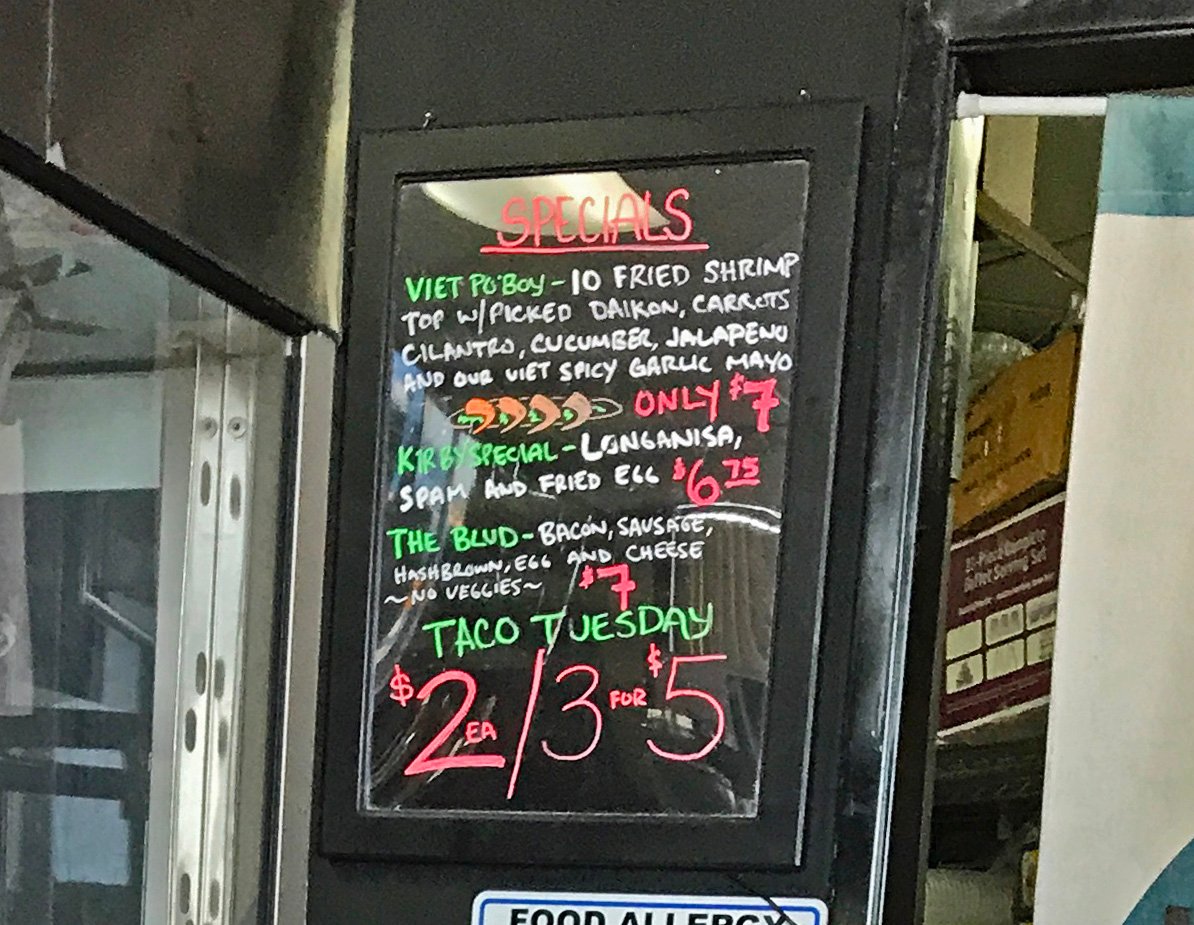 SPECIALS
VIET PO'BOY - 10 FRIED SHRIMP
TOP W/PICKED DAIKON, CARROTS
CILANTRO, CUCUMBER, JALAPENO
AND OUR VIET SPICY GARLIC MAYO
ONLY $7
KIRBY SPECIAL - LONGANISA,
SPAM AND FRIED EGG $6 75
THE BLUD - BACON, SAUSAGE,
HASHBROWN, EGG AND CHEESE
~NO VEGGIES~ $7
TACO TUESDAY
$2 EA / 3 FOR $5
FOOD ALLERGY
Serving Set